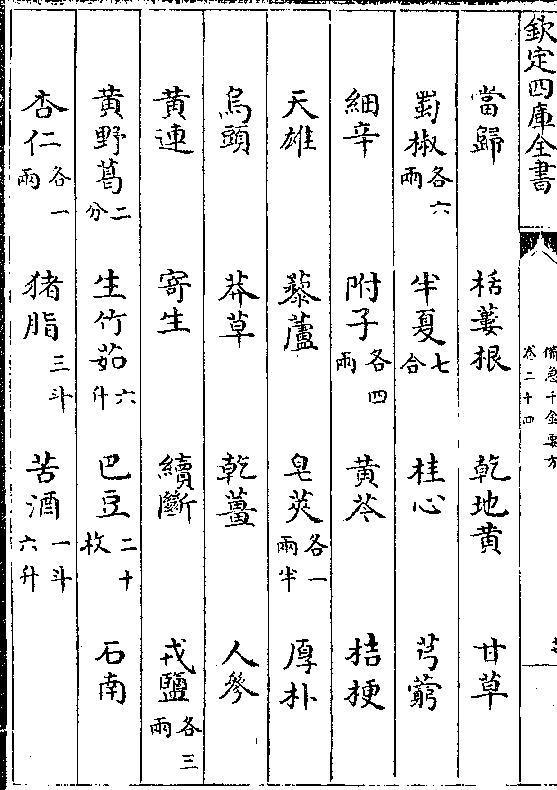 欽定四庫全書
備急千金要方
卷二十四
當歸 栝蔞根 乾地黄 甘草
蜀椒各六兩 半夏七合 桂心 芎藭
細辛 附子各四兩 黄芩 桔梗
天雄 藜蘆 皂莢各一兩半 厚朴
烏頭 莽草 乾薑 人參
黄連 寄生 續斷 戎鹽各三兩
黄野葛二分 生竹茹六升 巴豆二十枚 石南
杏仁各一兩 猪脂三斗 苦酒一斗六升